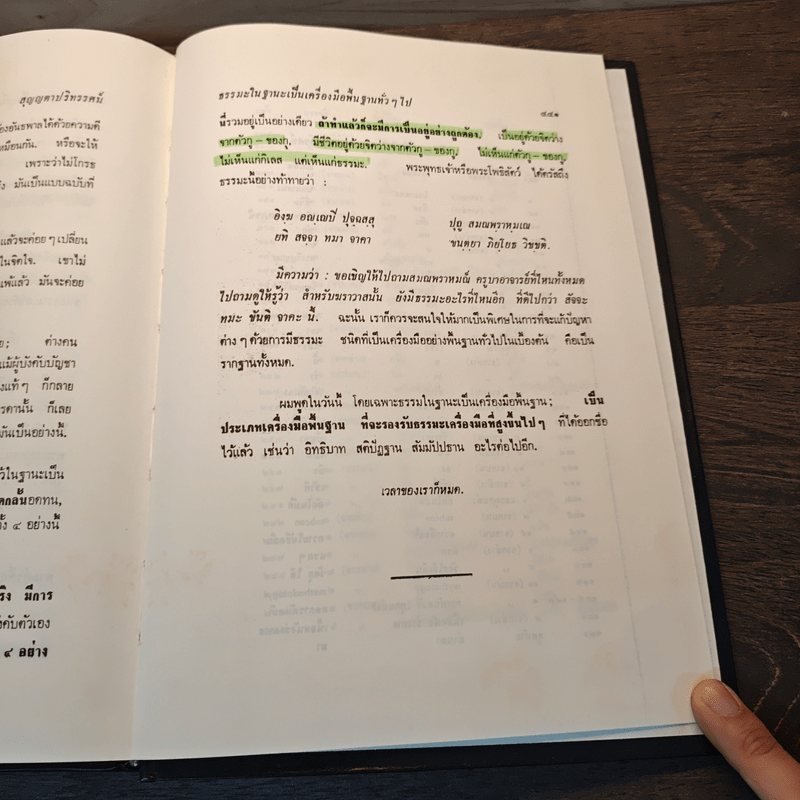 สุญญตาปริทรรศน์
องอันธพาลได้ด้วยความดี
หมือนกัน. หรือจะให้
เพราะว่าไม่โกรธ
มันเป็นแบบฉบับที่
แล้วจะค่อยๆ เปลี่ยน
ในจิตใจ. เขาไม่
แพ้แล้ว มันจะค่อย
ต่างคน
แม้ผู้บังคับบัญชา
งแท้ๆ ก็กลาย
รดานั้น ก็เลย
มันเป็นอย่างนี้.
ว้ในฐานะเป็น
ดกลั้นอดทน,
ั้ง ๔ อย่างนี้
ริง มีการ
งคับตัวเอง
๔ อย่าง
ธรรมะในฐานะเป็นเครื่องมือพื้นฐานทั่วๆ ไป
๔๔๑
นี้รวมอยู่เป็นอย่างเดียว ถ้าทำแล้วก็จะมีการเป็นอยู่อย่างถูกต้อง, เป็นอยู่ด้วยจิตว่าง
จากตัวกู – ของกู, มีชีวิตอยู่ด้วยจิตว่างจากตัวกู – ของกู, ไม่เห็นแก่ตัวกู – ของกู,
ไม่เห็นแก่กิเลส แต่เห็นแก่ธรรมะ. พระพุทธเจ้าหรือพระโพธิสัตว์ ได้ตรัสถึง
ธรรมะนี้อย่างท้าทายว่า :
อิงฺฆ อญฺเญปิ ปุจฺฉสฺสุ ปุถู สมณพฺราหฺมเณ
ยทิ สจฺจา ทมา จาคา ขนฺตฺยา ภิยฺโยธ วิชฺชติ.
มีความว่า : ขอเชิญให้ไปถามสมณพราหมณ์ ครูบาอาจารย์ที่ไหนทั้งหมด
ไปถามดูให้รู้ว่า สำหรับฆราวาสนั้น ยังมีธรรมะอะไรที่ไหนอีก ที่ดีไปกว่า สัจจะ
ทมะ ขันติ จาคะ นี้. ฉะนั้น เราก็ควรจะสนใจให้มากเป็นพิเศษในการที่จะแก้ปัญหา
ต่างๆ ด้วยการมีธรรมะ ชนิดที่เป็นเครื่องมืออย่างพื้นฐานทั่วไปในเบื้องต้น คือเป็น
รากฐานทั้งหมด.
ผมพูดในวันนี้ โดยเฉพาะธรรมในฐานะเป็นเครื่องมือพื้นฐาน; เป็น
ประเภทเครื่องมือพื้นฐาน ที่จะรองรับธรรมะเครื่องมือที่สูงขึ้นไปๆ ที่ได้ออกชื่อ
ไว้แล้ว เช่นว่า อิทธิบาท สติปัฏฐาน สัมมัปปธาน อะไรต่อไปอีก.
เวลาของเราก็หมด.